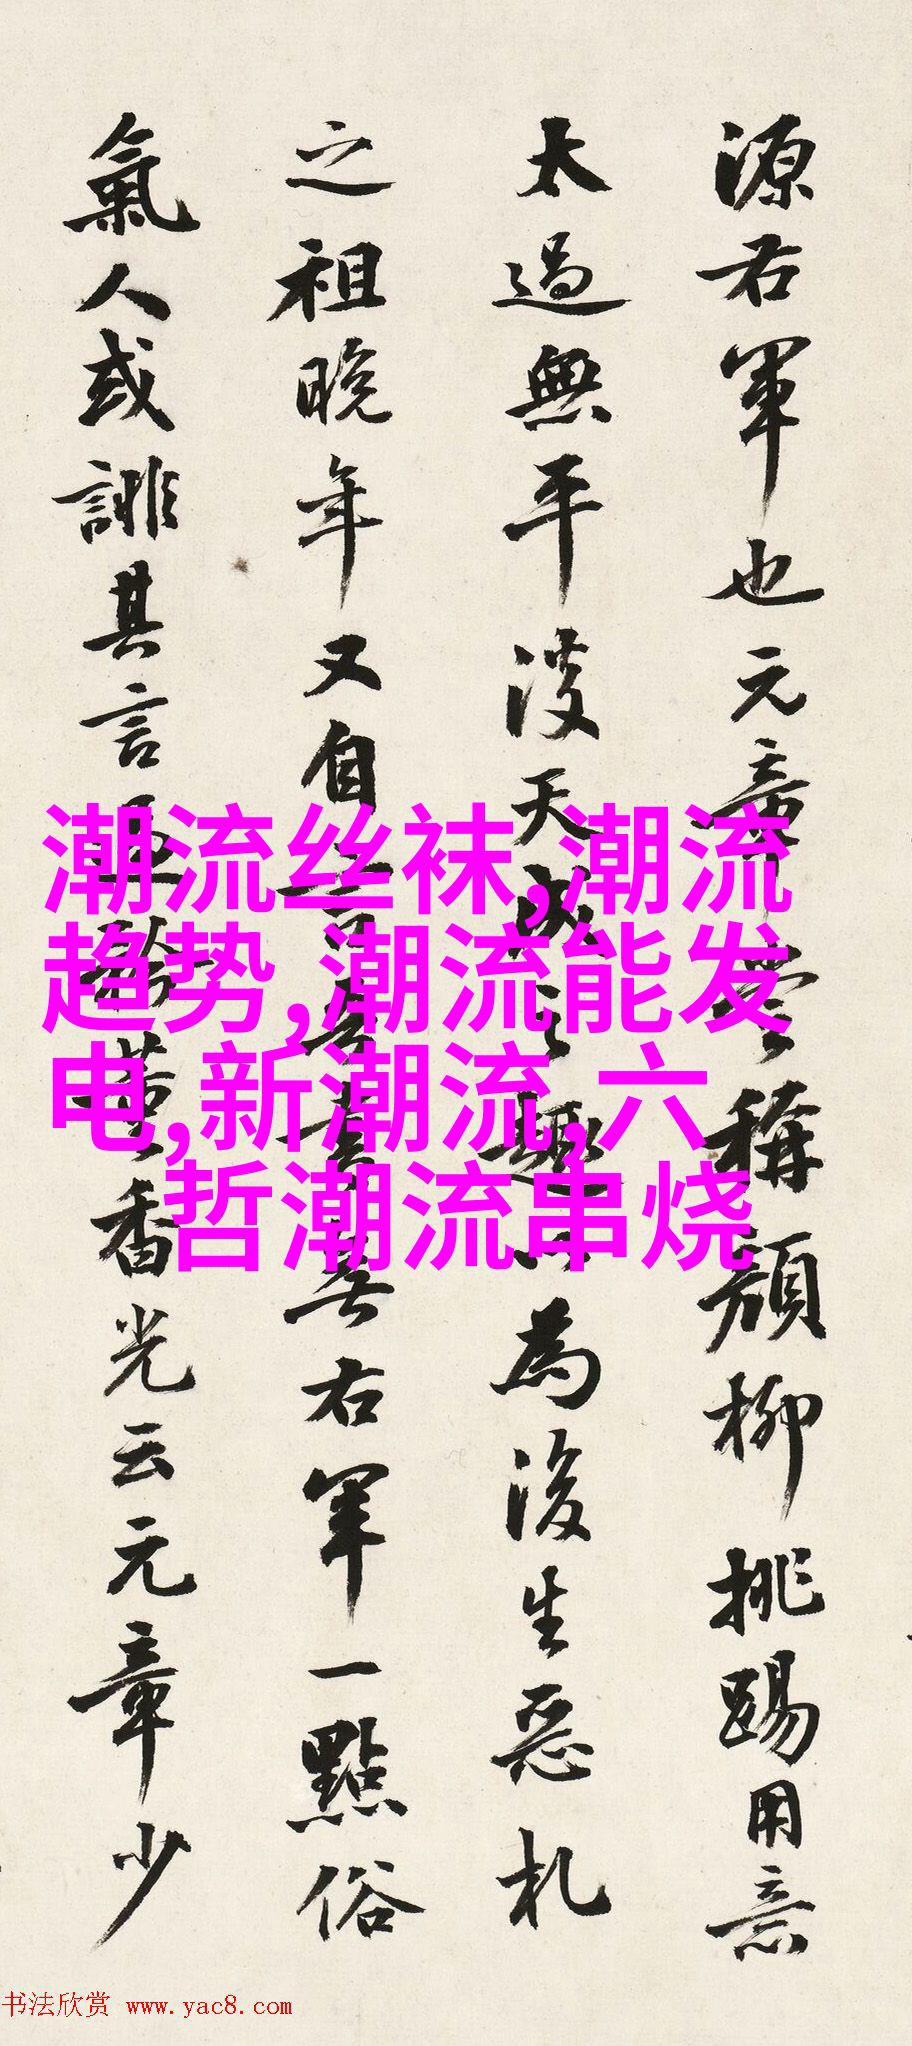 源右軍也元章嘗稱顏柳挑踢用意
太過無平淡天成之趣以為後生惡札
之祖晚年又自言吾書無右軍一點俗
氣人或誹其言黃香光云元章少
潮流丝袜,潮流
趋势,潮流能发
电,新潮流,六
哲潮流串烧
书法欣赏 www.yac8.com